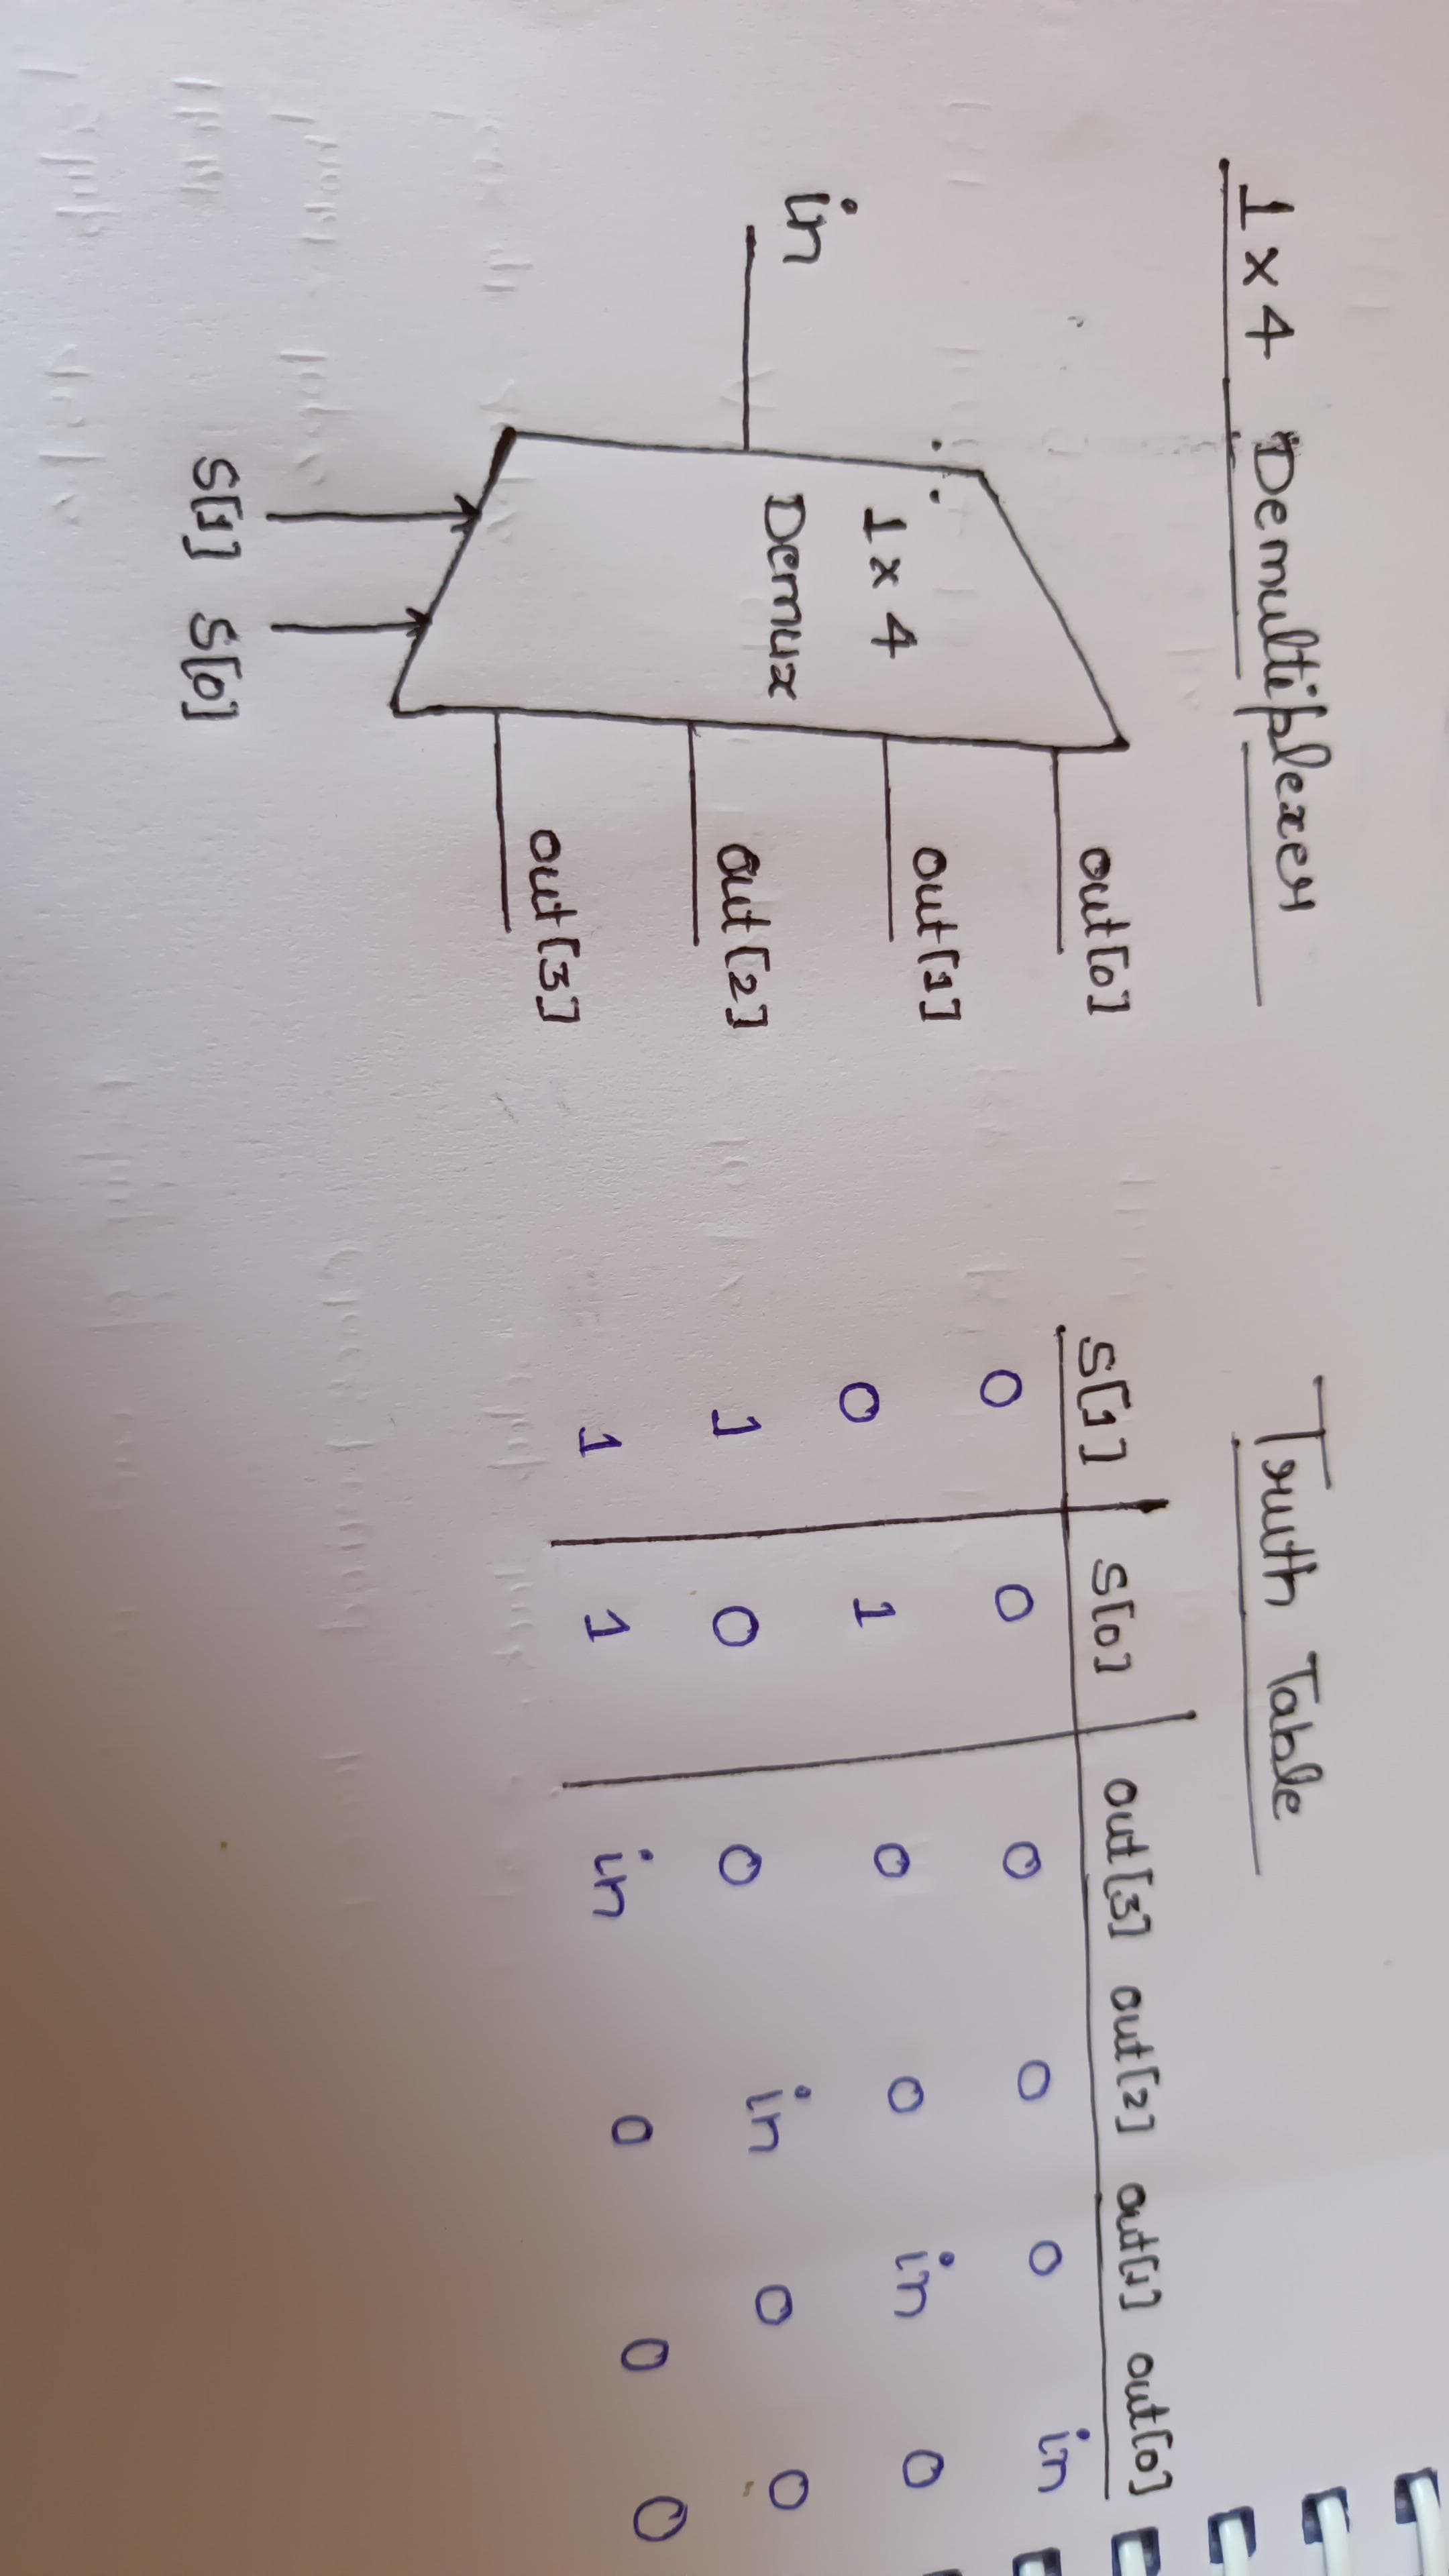 1 x 4 Demultiplexer
in
1 x 4
Demux
out[0]
out[1]
out[2]
out[3]
S[1] S[0]
Truth Table
S[1] S[0] out[3] out[2] out[1] out[0]
0 0 0 0 0 in
0 1 0 0 in 0
1 0 0 in 0 0
1 1 in 0 0 0